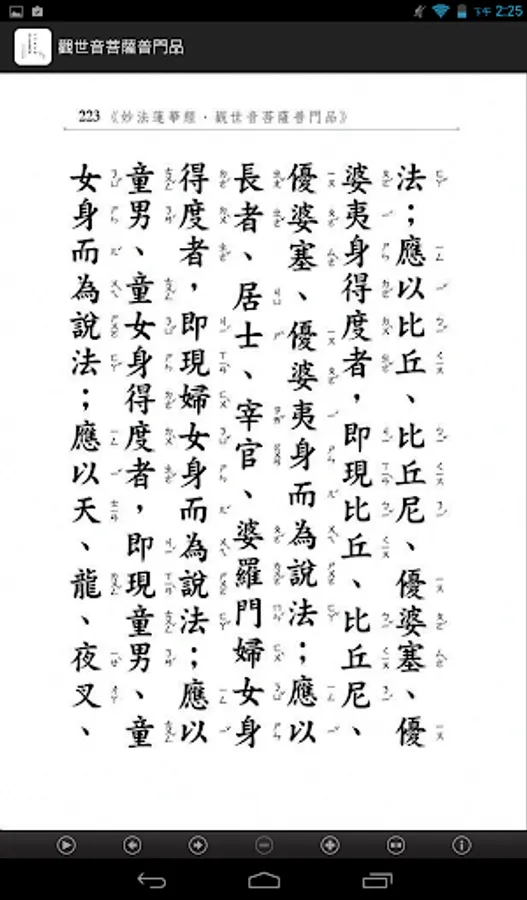 下午 2:25
觀世音菩薩普門品
223《妙法蓮華經・觀世音菩薩普門品》
法；應以比丘、比丘尼、優婆塞、優
婆夷身得度者，即現比丘、比丘尼、
優婆塞、優婆夷身而為說法；應以
長者、居士、宰官、婆羅門婦女身
得度者，即現婦女身而為說法；應以
童男、童女身得度者，即現童男、童
女身而為說法；應以天、龍、夜叉、